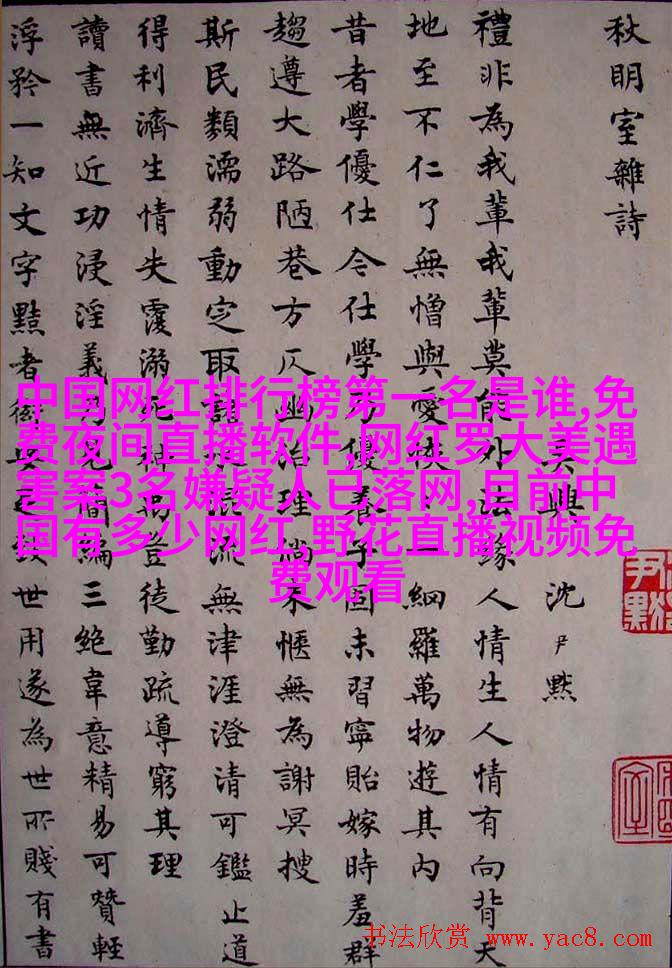 秋明室雜詩
吳興 沈尹默
禮非為我輩我輩莫能外法緣人情生人情有向背天
地至不仁了無憎與愛一網羅萬物遊其內
昔者學優仕令仕學優養子固未習寧貽嫁時羞群
趨遵大路陋巷方仄幽治理倘不愜無為謝冥搜
斯民類濡弱動定取流無津涯澄清可鑑止道
得利濟生情失覆溺死神禹豈徒勤疏導窮其理
讀書無近功浸淫義乃見簡編三絕韋意精易可贊輕
浮矜一知文字黠者世用遂為世所賤有書
中国网红排行榜第一名是谁,免
费夜间直播软件,网红罗大美遇
害案3名嫌疑人已落网,目前中
国有多少网红,野花直播视频免
费观看
书法欣赏 www.yac8.com